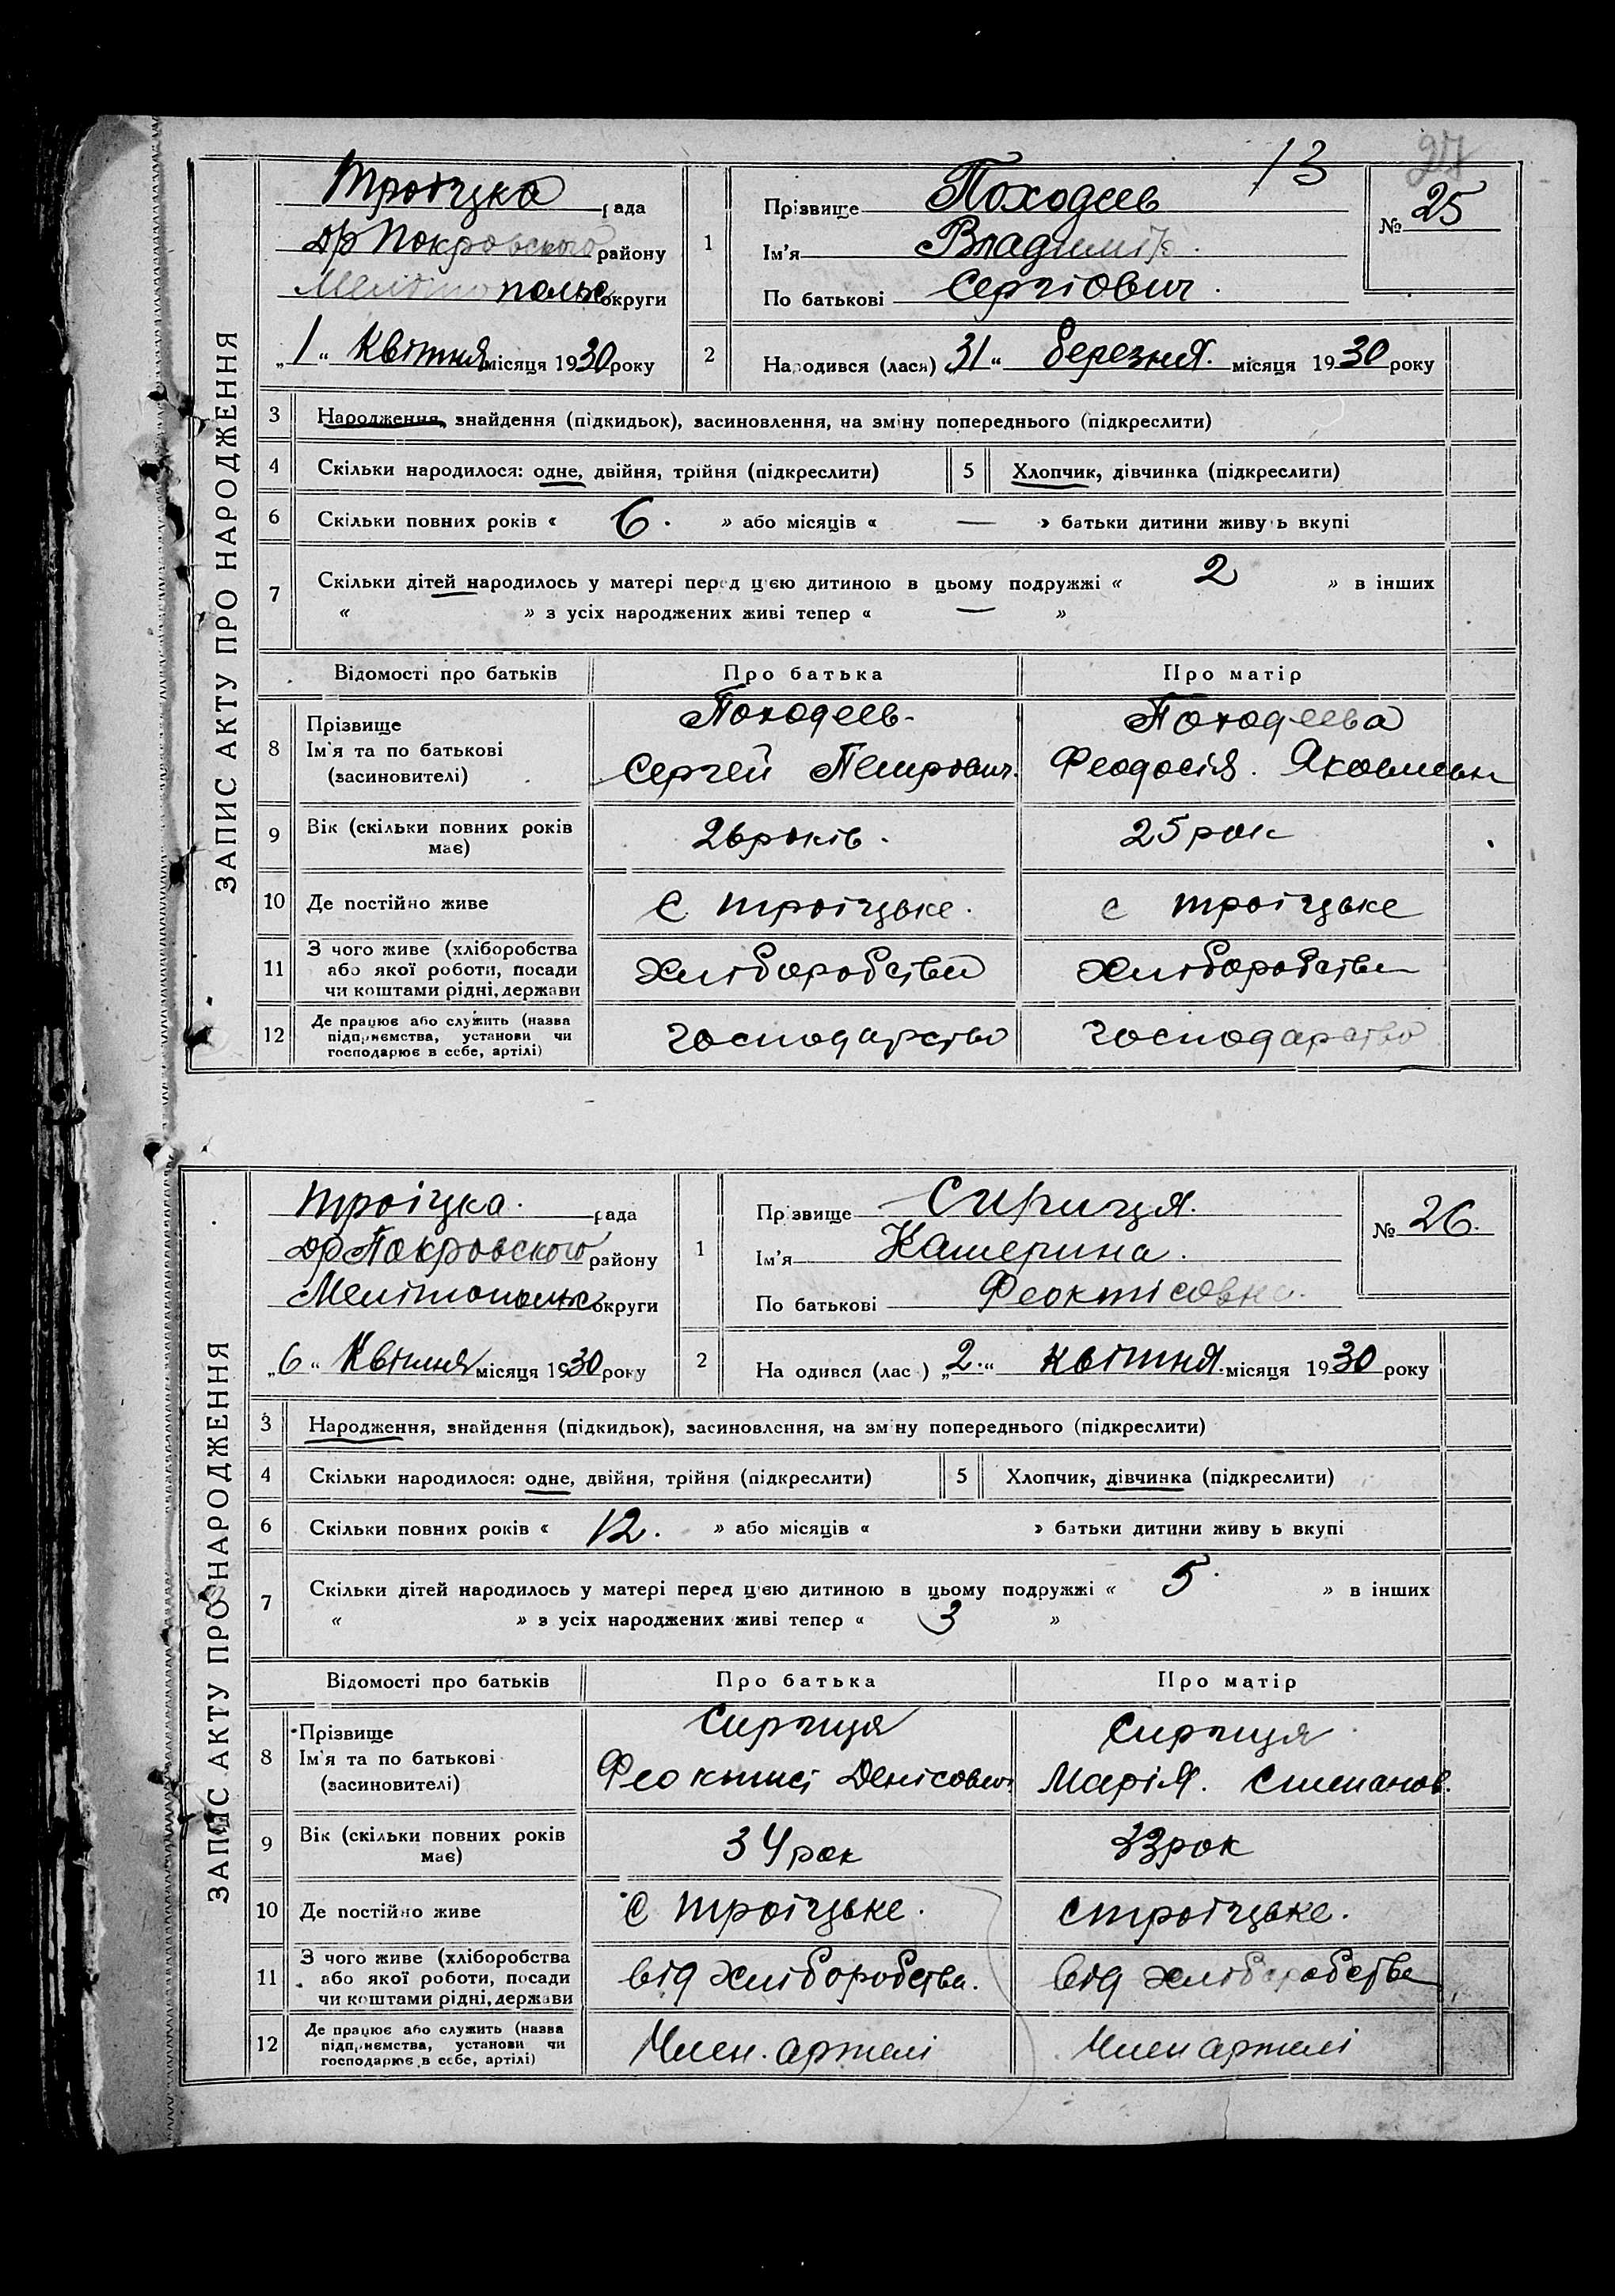 13
27
ЗАПИС АКТУ ПРО НАРОДЖЕННЯ
Троіцка рада
др Покровського району
Мелітополь округи
„1“ Квітня місяця 1930 року
1
Прізвище Походеев
Ім'я Владимір.
По батькові Сергіович.
№ 25
2
Народився (лася) „31“ березня. місяця 1930 року
3 Народження, знайдення (підкидьок), засиновлення, на зміну попереднього (підкреслити)
4 Скільки народилося: одне, двійня, трійня (підкреслити) 5 Хлопчик, дівчинка (підкреслити)
6 Скільки повних років « 6. » або місяців « — » батьки дитини живу ь вкупі
7 Скільки дітей народилось у матері перед цією дитиною в цьому подружжі « 2 » в інших
« » з усіх народжених живі тепер « — »
Відомості про батьків Про батька Про матір
8 Прізвище Ім'я та по батькові (засиновителі)
Походеев- Походеева
Сергей Петрович. Феодосія.
9 Вік (скільки повних років має) 26 років. 25 рок
10 Де постійно живе с троіцьке. с троіцьке
11 З чого живе (хліборобства або якої роботи, посади чи коштами рідні, держави
Хліборобства Хліборобства
12 Де працює або служить (назва підприємства, установи чи господарює в себе, артілі)
господарство господарство
ЗАПИС АКТУ ПРО НАРОДЖЕННЯ
троіцка. рада
др Покровського району
Мелітопольс округи
„6“ Квітня місяця 1930 року
1
Пр звище Сиргиця.
Ім'я Катерина.
По батькові Феоктісовна.
№ 26.
2
На одився (лас ) „2.“ квітня. місяця 1930 року
3 Народження, знайдення (підкидьок), засиновлення, на зм ну попереднього (підкреслити)
4 Скільки народилося: одне, двійня, трійня (підкреслити) 5 Хлопчик, дівчинка (підкреслити)
6 Скільки повних років « 12. » або місяців « » батьки дитини живу ь вкупі
7 Скільки дітей народилось у матері перед цією дитиною в цьому подружжі « 5. » в інших
« » з усіх народжених живі тепер « 3 »
Відомості про батьків Про батька Про матір
8 Прізвище Ім'я та по батькові (засиновителі)
Сиргиця Сиргиця
Феоктисі Денісович Марія. Степанов.
9 Вік (скільки повних років має) 34 рок 33 рок
10 Де постійно живе с троіцьке. с троіцьке.
11 З чого живе (хліборобства або якої роботи, посади чи коштами рідні, держави
від хліборобства. від хліборобства
12 Де працює або служить (назва підприємства, установи чи господарює в себе, артілі)
Член. артелі Член артелі